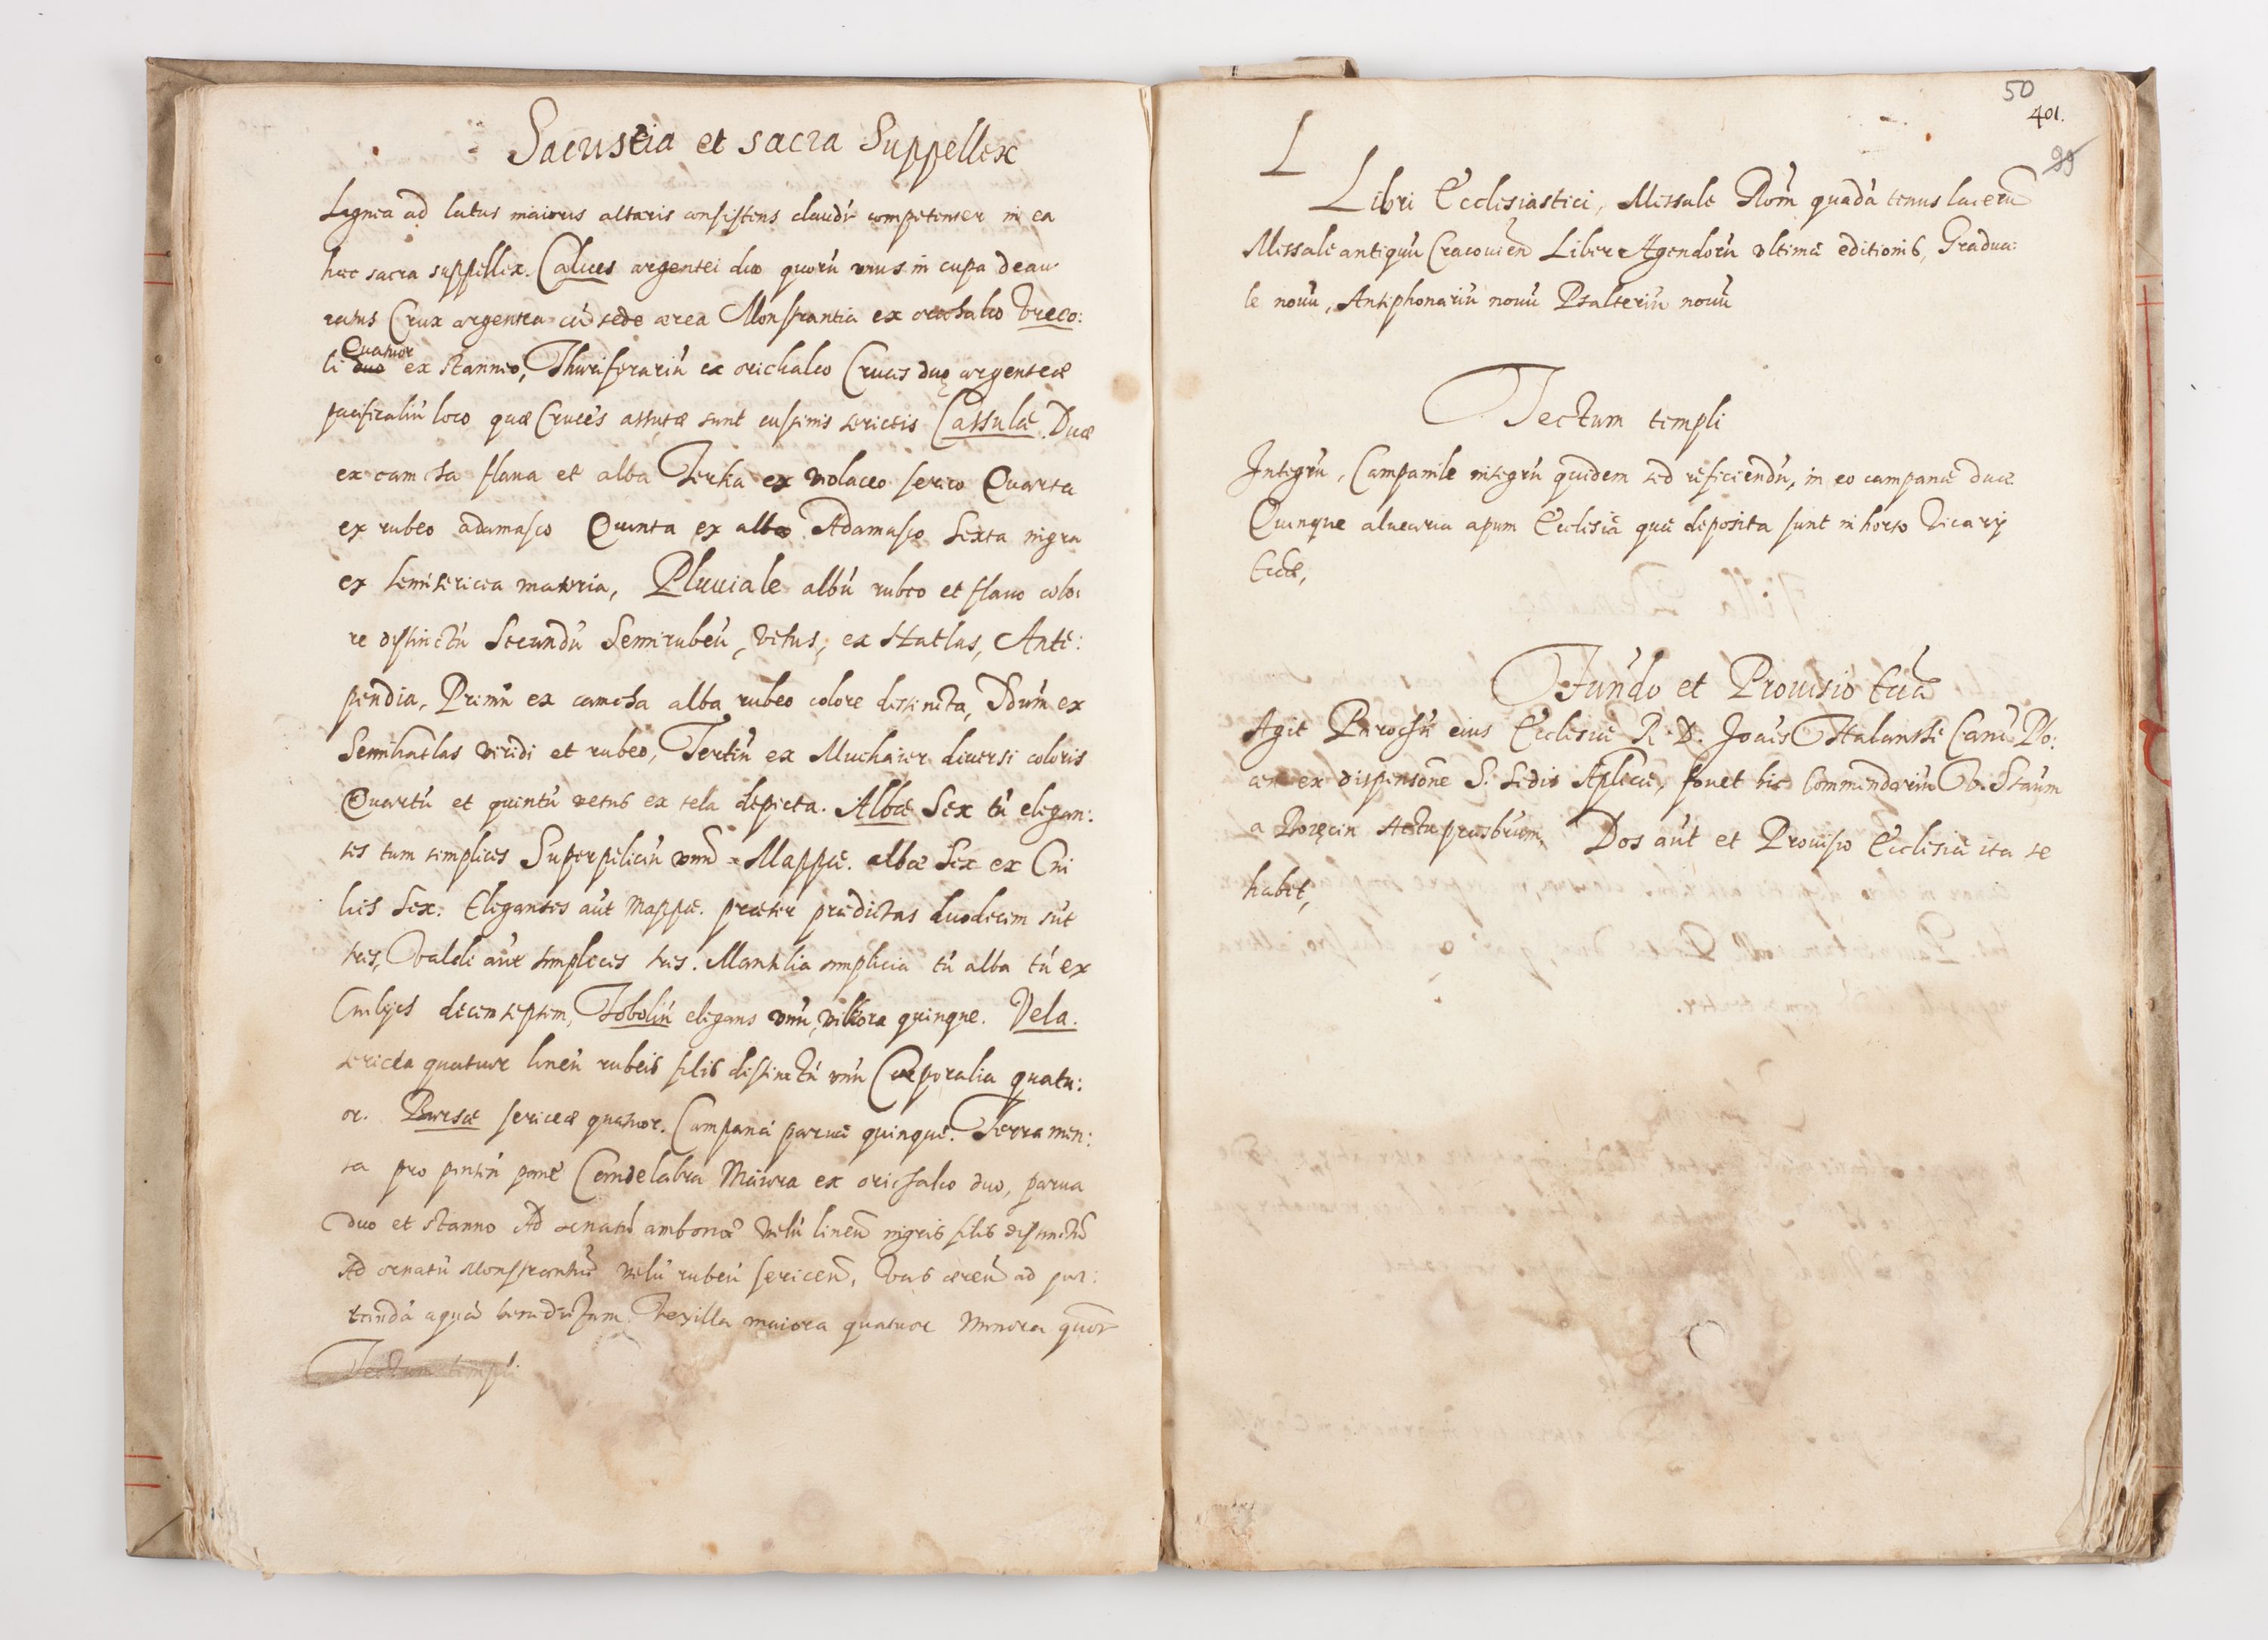 Sacristia et sacra Suppellex
Lignea ad latus maioris altaris consistens claudir competenter in ea
haec sacra suppellex. Calices argentei duo quorũ unus in cupa deau
ratus Crux argentea cũ sede aerea Monstrantia ex orichalco Vreco:
li Quatuor duo ex stanneo, Thuriferariũ ex orichalco Cruces duę argenteæ
pacificaliũ loco quæ Cruces assutæ sunt cussinis sericeis Cassulæ. Duæ
ex camcha flava et alba Tertia ex violaceo serico Quarta
ex rubeo adamasco Quinta ex albo Adamasco Sexta nigra
ex semisericea materia, Pluviale albũ rubeo et flavo colo:
re distinctũ Secundũ Semirubeũ, vetus, ex Hatlas, Ante:
pendia, Primũ ex camcha alba rubeo colore distincta, Sdũm ex
Semihatlas viridi et rubeo, Tertiũ ex Muchaier diversi coloris
Quartũ et quintũ vetus ex tela depicta. Albæ Sex tũ elegan:
tes tum simplices Superpeliciũ unũ Mappæ. albæ Sex ex Cui
licis Sex. Elegantes aũt Mappæ. præter prædictas duodecim sũt
tres, valde aũt simplices tres. Mantilia simplicia tũ alba tũ ex
Cuilijs decem septem, Toboliũ elegans unũ, viliora quinque. Vela.
sericea quatuor lineũ rubeis filis distinctũ unũ Corporalia quatu:
or. Bursæ sericeæ quatuor. Campanæ parvæ quinque. Ferramen:
ta pro pane Candelabra Maiora ex orichalco duo, parva
duo et stanno Ad ornatũ ambonæ velũ lineũ nigris filis distinctũ
Ad ornatũ Monstrantiæ velũ rubeũ sericeũ, Vas aereũ ad por:
tandã aquã benedictam. Vexilla maiora quatuor Minora quor
Tectum templi
50
401.
99
L
Libri Ecclesiastici, Missale Rom̃ quadã tenus lacerũ
Missale antiquũ Cracovien̄ Liber Agendorũ ultimæ editionis, Gradua:
le novũ, Antiphonariũ novũ Psalteriũ novũ
Tectum templi
Integrũ, Campanile integrũ quidem sed reficiendũ, in eo campanæ duæ
Quinque alvearia apum Ecclesiæ quæ deposita sunt in horto Vicarij
Eccæ,
Fundo et Provisio Eccæ
Agit Parochũ eius Ecclesiæ R. D. Joañes Halanski Canũ Po:
cen ex dispensõne S. Sedis Aplicæ, fovet hic Commendariũ V. Staũm
a Poręcin Actu presbrum, Dos aũt et Provisio Ecclesiæ ita se
habet,